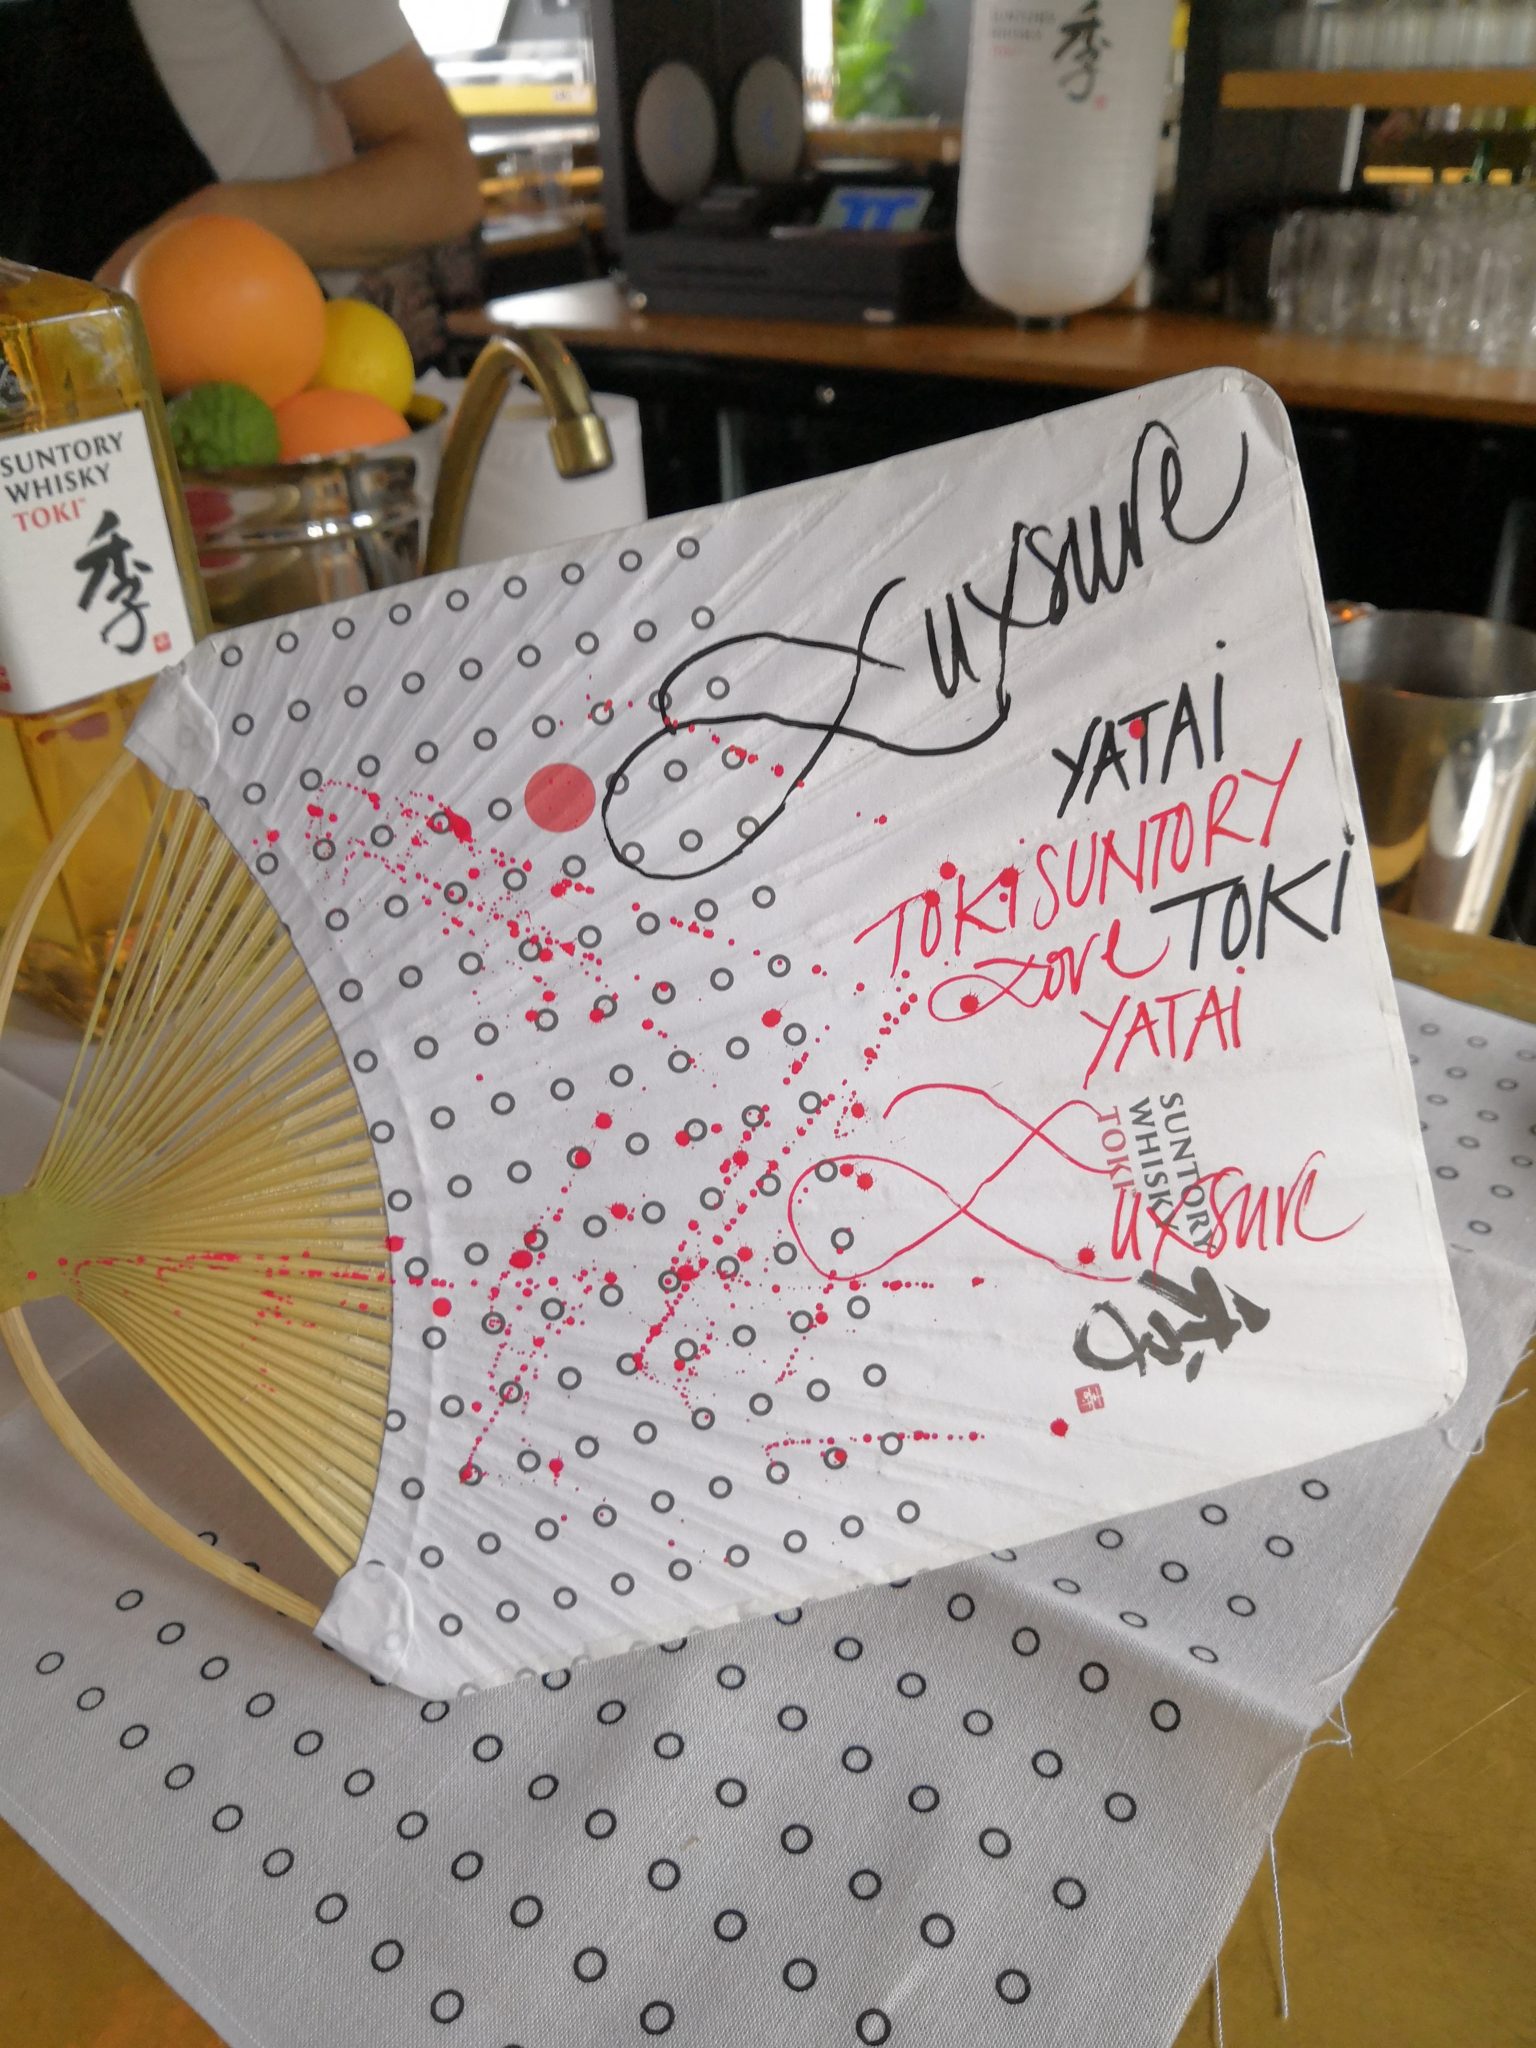 SUNTORY
WHISKY
TOKI™
季
季
Luxsure
YATAI
TOKI SUNTORY
Love TOKI
YATAI
SUNTORY
WHISKY
TOKI
Luxsure
季